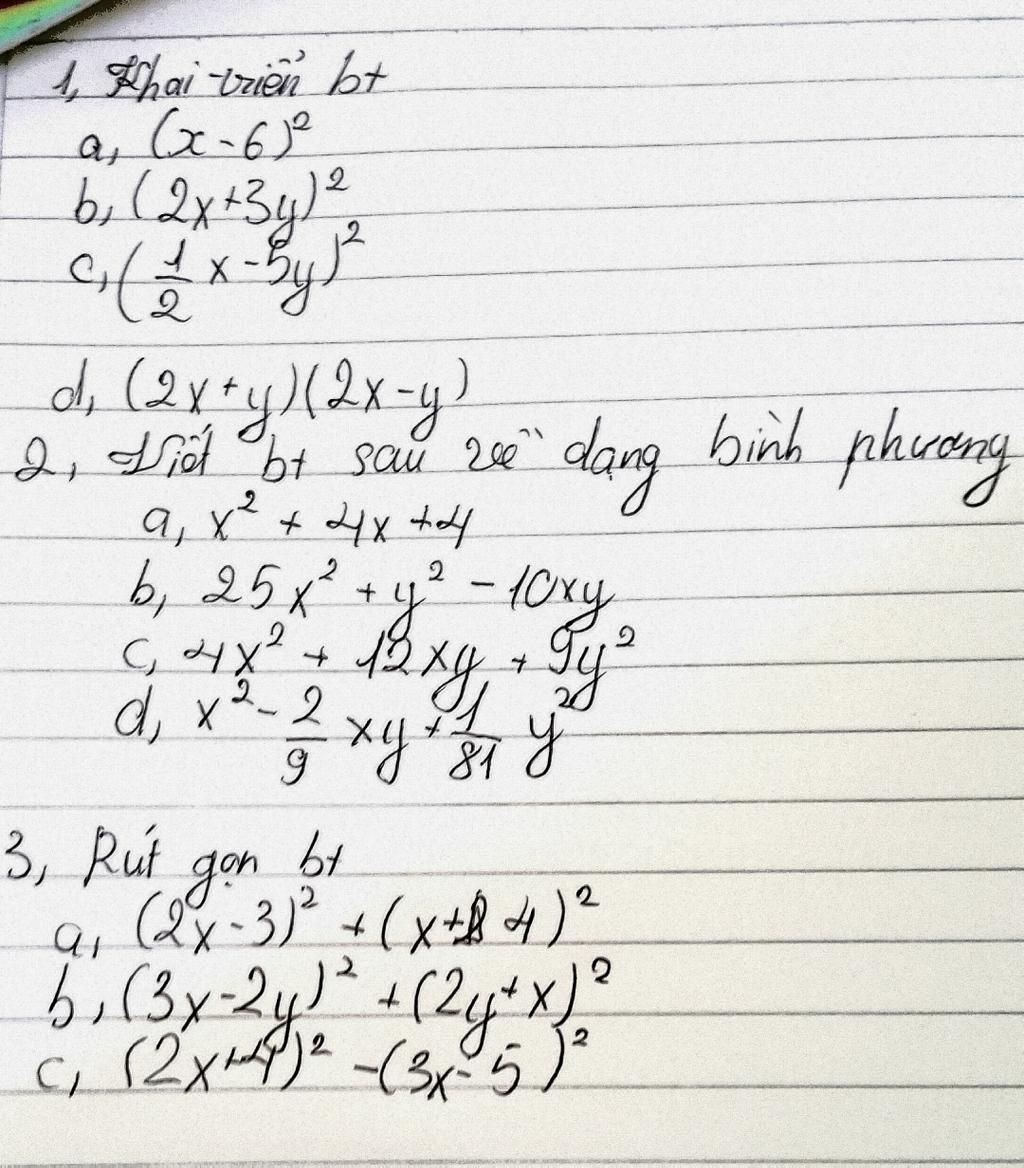 1, Khai triển bt
a, (x-6)²
b, (2x+3y)²
c, (1/2 x-5y)²
d, (2x+y)(2x-y)
2, Viết bt sau về dạng bình phương
a, x² + 4x +4
b, 25x² + y² - 10xy
c, 4x² + 12xy + 9y²
d, x² - 2/9 xy + 1/81 y²
3, Rút gọn bt
a, (2x-3)² + (x+4)²
b, (3x-2y)² + (2y+x)²
c, (2x+4)² -(3x-5)²